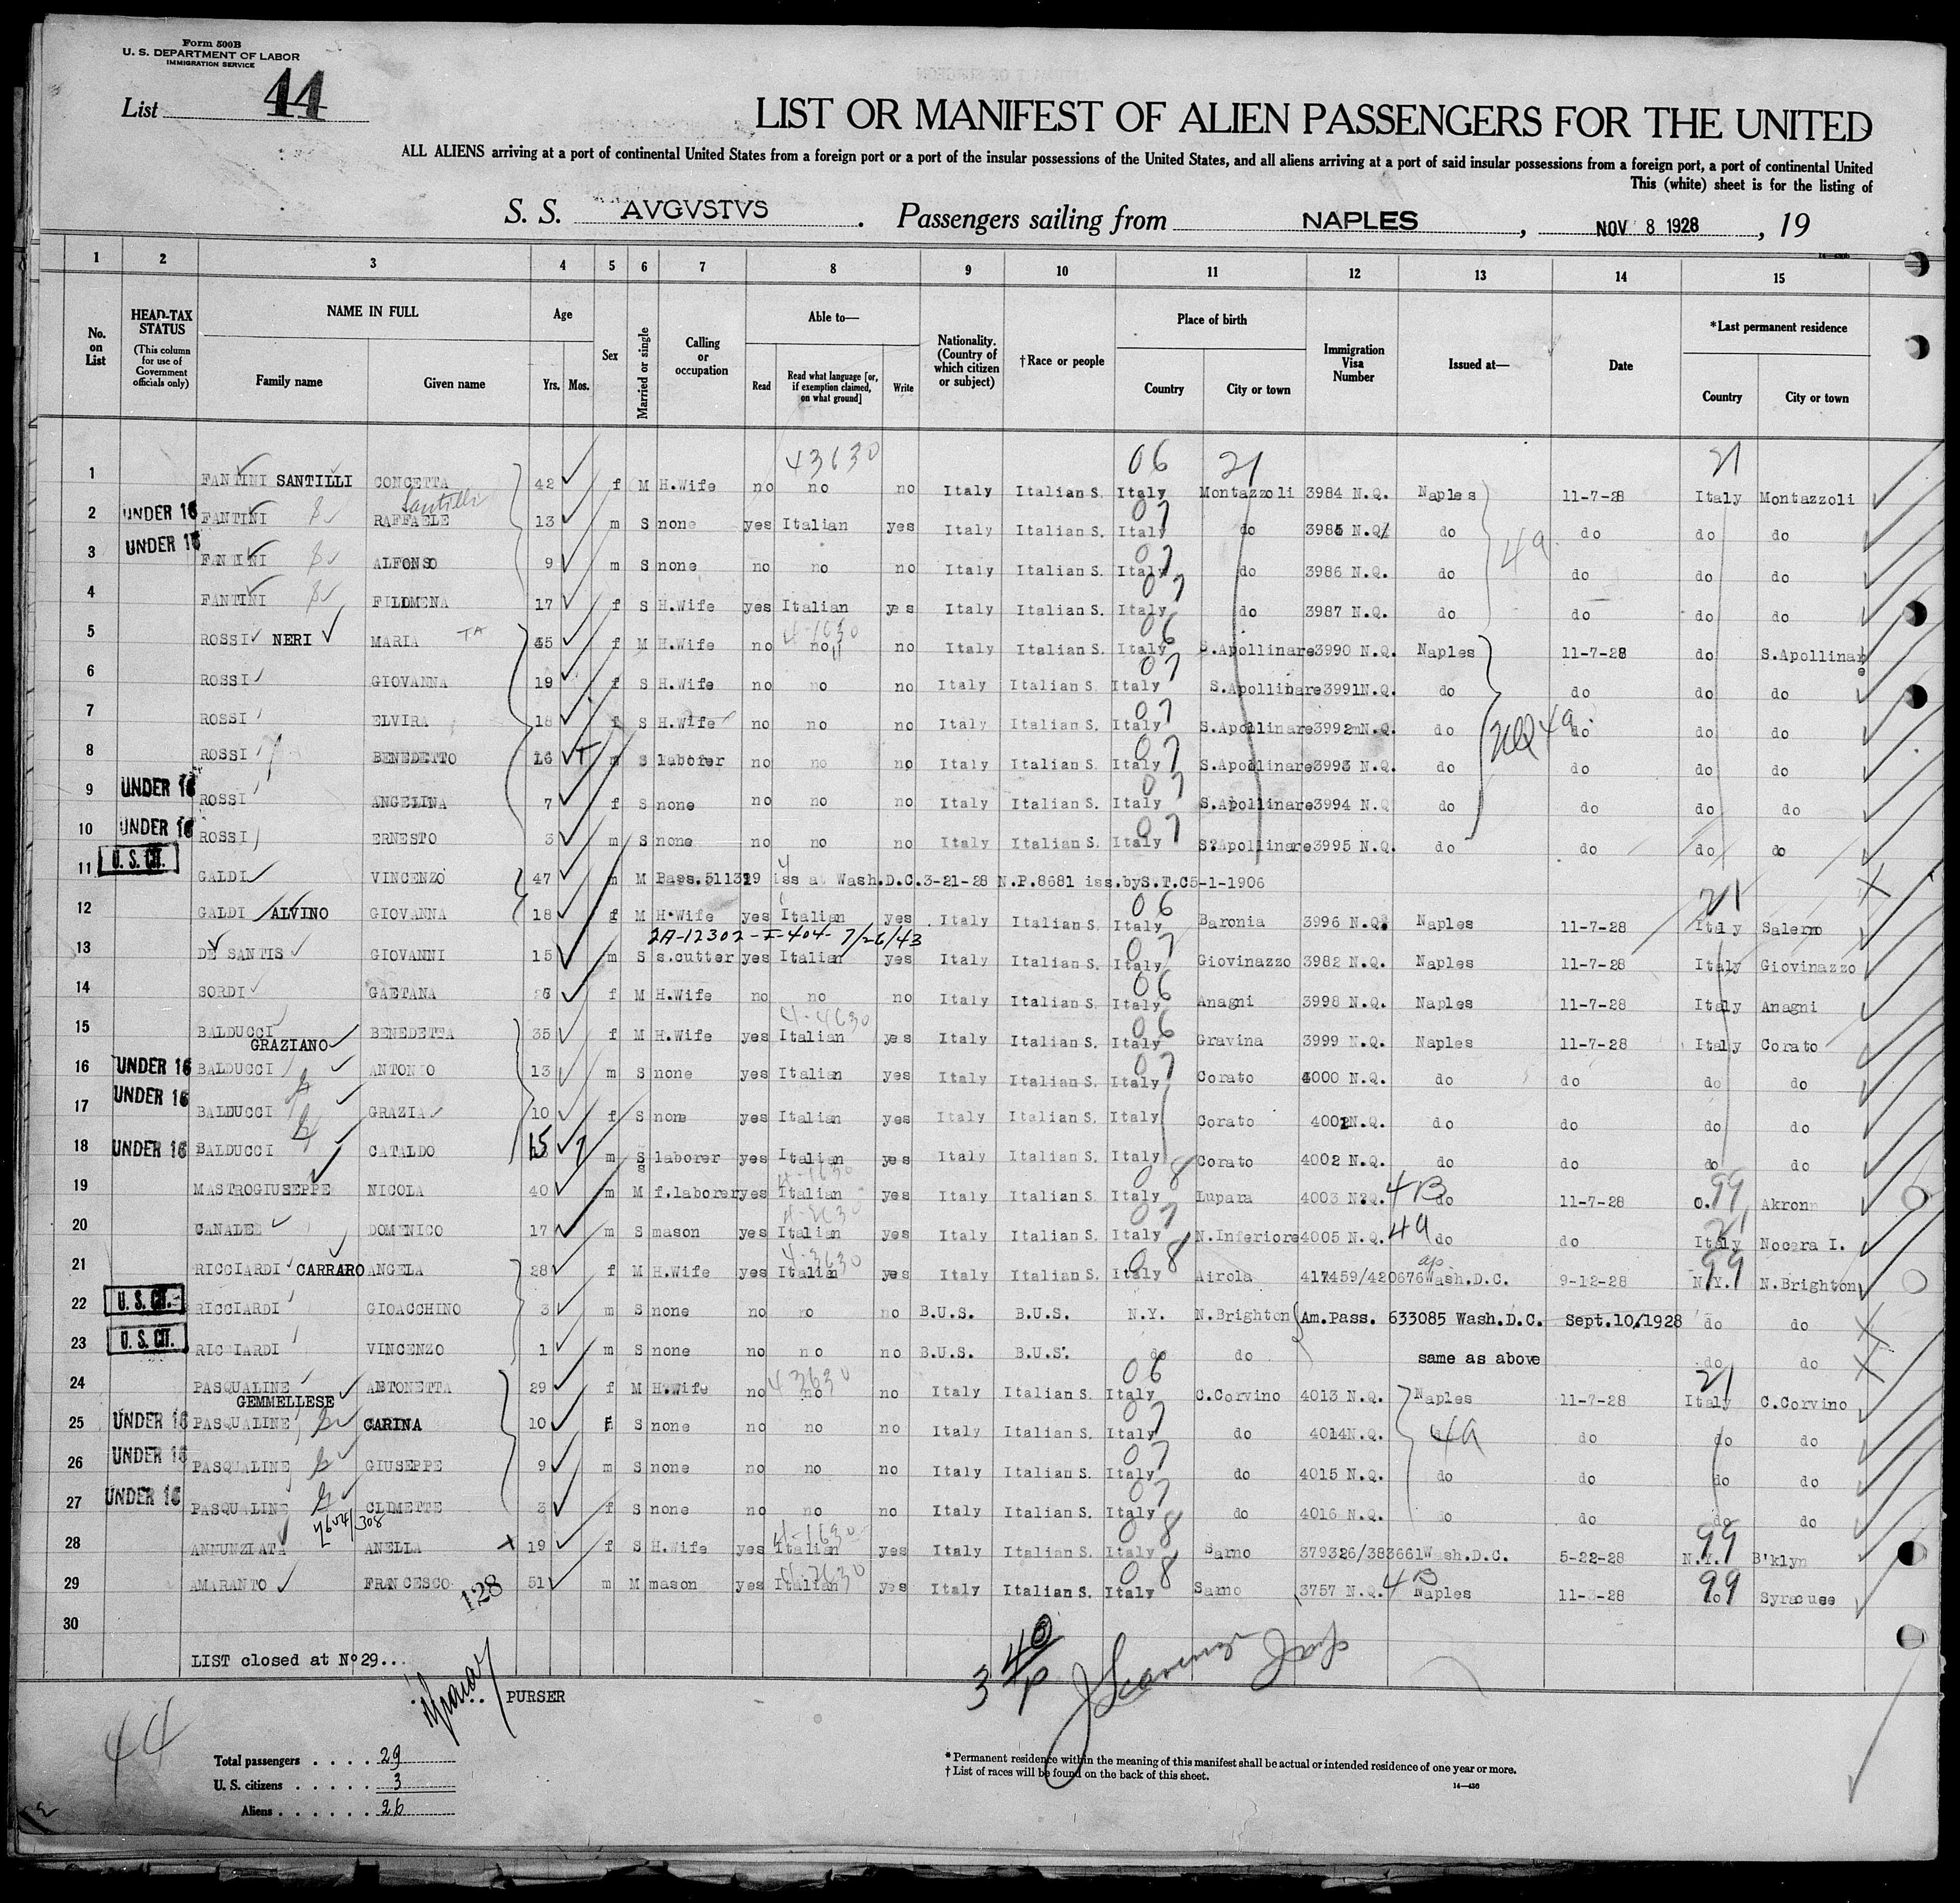 Form 500B
U. S. DEPARTMENT OF LABOR
IMMIGRATION SERVICE
List 44
LIST OR MANIFEST OF ALIEN PASSENGERS FOR THE UNITED
ALL ALIENS arriving at a port of continental United States from a foreign port or a port of the insular possessions of the United States, and all aliens arriving at a port of said insular possessions from a foreign port, a port of continental United
This (white) sheet is for the listing of
S. S. AVGVSTVS. Passengers sailing from NAPLES, NOV 8 1928, 19
1 2 3 4 5 6 7 8 9 10 11 12 13 14 15
No. on List
HEAD-TAX STATUS (This column for use of Government officials only)
NAME IN FULL
Family name Given name
Age
Yrs. Mos.
Sex
Married or single
Calling or occupation
Able to—
Read
Read what language [or, if exemption claimed, on what ground]
Write
Nationality. (Country of which citizen or subject)
†Race or people
Place of birth
Country City or town
Immigration Visa Number
Issued at—
Date
*Last permanent residence
Country City or town
43630 06 21 21
1 FANTINI SANTILLI CONCETTA 42 f M H.Wife no no no Italy Italian S. Italy Montazzoli 3984 N.Q. Naples 11-7-28 Italy Montazzoli
Santilli 07
2 UNDER 16 FANTINI RAFFAELE 13 m S none yes Italian yes Italy Italian S. Italy do 3985 N.Q. do do do do
07 4a
3 UNDER 16 FANTINI ALFONSO 9 m S none no no no Italy Italian S. Italy do 3986 N.Q. do do do do
07
4 FANTINI FILOMENA 17 f S H.Wife yes Italian yes Italy Italian S. Italy do 3987 N.Q. do do do do
4-1630 06
5 ROSSI NERI MARIA 45 f M H.Wife no no no Italy Italian S. Italy S.Apollinare 3990 N.Q. Naples 11-7-28 do S.Apollinare
07
6 ROSSI GIOVANNA 19 f S H.Wife no no no Italy Italian S. Italy S.Apollinare 3991N.Q. do do do do
07
7 ROSSI ELVIRA 18 f S H.Wife no no no Italy Italian S. Italy S.Apollinare 3992 N.Q. do do do do
07 All 4a
8 ROSSI BENEDETTO 16 m S laborer no no no Italy Italian S. Italy S.Apollinare 3993 N.Q. do do do do
07
9 UNDER 16 ROSSI ANGELINA 7 f S none no no no Italy Italian S. Italy S.Apollinare 3994 N.Q do do do do
07
10 UNDER 16 ROSSI ERNESTO 3 m S none no no no Italy Italian S. Italy S.Apollinare 3995 N.Q. do do do do
11 U. S. CIT. GALDI VINCENZO 47 m M Pass.511319 iss at Wash.D.C.3-21-28 N.P.8681 iss.byS.T.C5-1-1906
06 21
12 GALDI ALVINO GIOVANNA 18 f M H.Wife yes Italian yes Italy Italian S. Italy Baronia 3996 N.Q. Naples 11-7-28 Italy Salerno
2A-12302-I-404- 7/26/43 07
13 DE SANTIS GIOVANNI 15 m S s.cutter yes Italian yes Italy Italian S. Italy Giovinazzo 3982 N.Q. Naples 11-7-28 Italy Giovinazzo
06
14 SORDI GAETANA f M H.Wife no no no Italy Italian S. Italy Anagni 3998 N.Q. Naples 11-7-28 Italy Anagni
4-4630 06
15 BALDUCCI GRAZIANO BENEDETTA 35 f M H.Wife yes Italian yes Italy Italian S. Italy Gravina 3999 N.Q. Naples 11-7-28 Italy Corato
07
16 UNDER 16 BALDUCCI ANTONIO 13 m S none yes Italian yes Italy Italian S. Italy Corato 4000 N.Q. do do do do
17 UNDER 16 BALDUCCI GRAZIA 10 f S none yes Italian yes Italy Italian S. Italy Corato 4001N.Q. do do do do
18 UNDER 16 BALDUCCI CATALDO 15 m S laborer yes Italian yes Italy Italian S. Italy Corato 4002 N.Q. do do do do
4-1630 08 4B 99
19 MASTROGIUSEPPE NICOLA 40 m M f.laborer yes Italian yes Italy Italian S. Italy Lupara 4003 N.Q. do 11-7-28 O. Akron
07 4a 21
20 CANALE DOMENICO 17 m S mason yes Italian yes Italy Italian S. Italy N.Inferiore 4005 N.Q. do do Italy Nocera I.
4-3630 08 99
21 RICCIARDI CARRARO ANGELA 28 f M H.Wife yes Italian yes Italy Italian S. Italy Airola 417459/420676 Wash.D.C. 9-12-28 N.Y. N.Brighton
22 U. S. CIT. RICCIARDI GIOACCHINO 3 m S none no no no B.U.S. B.U.S. N.Y. N.Brighton Am.Pass. 633085 Wash.D.C. Sept.10/1928 do do
23 U. S. CIT. RICCIARDI VINCENZO 1 m S none no no no B.U.S. B.U.S. do do same as above do do
43630 06 21
24 PASQUALINE GEMMELLESE ANTONETTA 29 f M H.Wife no no no Italy Italian S. Italy C.Corvino 4013 N.Q. Naples 11-7-28 Italy C.Corvino
07 4a
25 UNDER 16 PASQUALINE CARINA 10 f S none no no no Italy Italian S. Italy do 4014N.Q. do do do
07
26 UNDER 16 PASQUALINE GIUSEPPE 9 m S none no no no Italy Italian S. Italy do 4015 N.Q. do do do do
07
27 UNDER 16 PASQUALINE CLIMETTE 3 f S none no no no Italy Italian S. Italy do 4016 N.Q. do do do do
4-1630 08 99
28 ANNUNZIATA ANELLA X 19 f S H.Wife yes Italian yes Italy Italian S. Italy Sarno 379326/383661 Wash.D.C. 5-22-28 N.Y. B'klyn
08 4B 99
29 AMARANTO FRANCESCO 128 51 m M mason yes Italian yes Italy Italian S. Italy Sarno 3757 N.Q. Naples 11-3-28 do Syracuse
30
LIST closed at Nº29...
PURSER
44
Total passengers . . . . 29
U. S. citizens . . . . . 3
Aliens . . . . . . 26
* Permanent residence within the meaning of this manifest shall be actual or intended residence of one year or more.
† List of races will be found on the back of this sheet.
14—430